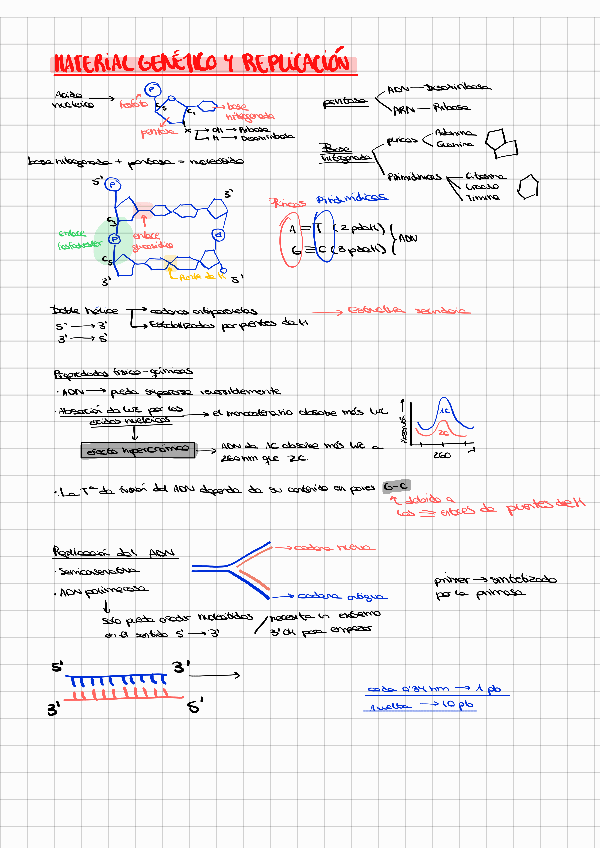 MATERIAL GENÉTICO Y REPLICACIÓN
Ácido nucleico →
P
fosfato
C5
C1
base nitrogenada
pentosa
X
OH → Ribosa
H → Desoxirribosa
pentosa
ADN — Desoxirribosa
ARN — Ribosa
Base Nitrogenada
púricas
Adenina
Guanina
Pirimidínicas
Citosina
Uracilo
Timina
base nitrogenada + pentosa = nucleósido
5'
P
3'
C3
enlace fosfodiester
P
enlace glucosídico
P
C5
3'
Puente de H
5'
Púricas Pirimidínicas
A = T (2 pdte H)
G ≡ C (3 pdte H)
ADN
Doble hélice → cadenas antiparalelas → Estructura secundaria
5' → 3' → Estabilizadas por puentes de H
3' → 5'
Propiedades físico-químicas
· ADN → puede separarse reversiblemente
· Absorción de luz por los ácidos nucleicos → el monocatenario absorbe más luz
efecto hipercrómico → ADN de 1C absorbe más luz a
260nm que 2C.
1C
2C
260
λ
· La Tª de fusión del ADN depende de su contenido en pares G-C
↑ debido a
los ≡ enlaces de puentes de H
Replicación del ADN
· Semiconservativa
· ADN polimerasa
→ cadena nueva
→ cadena antigua
primer → sintetizado
por la primasa
solo puede añadir nucleótidos / necesita un extremo
en el sentido 5' → 3' 3'OH para empezar
5' 3' →
3' 5'
cada 0'34 nm → 1 pb
1 vuelta → 10 pb